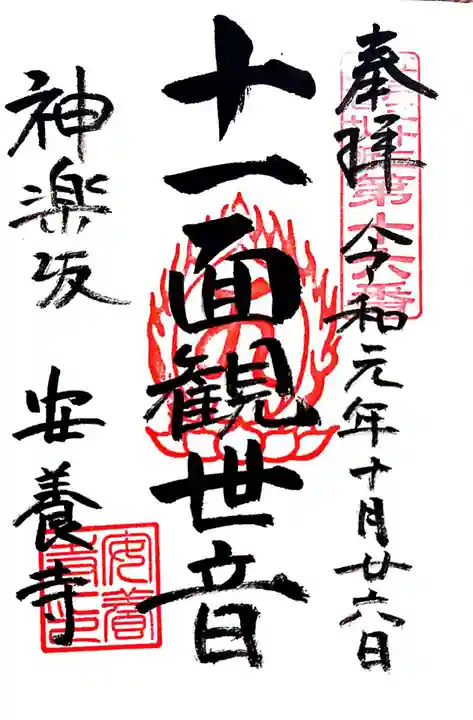 奉拝 令和元年十月廿六日
第十六番
十一面観世音
神楽坂 安養寺
安養寺印